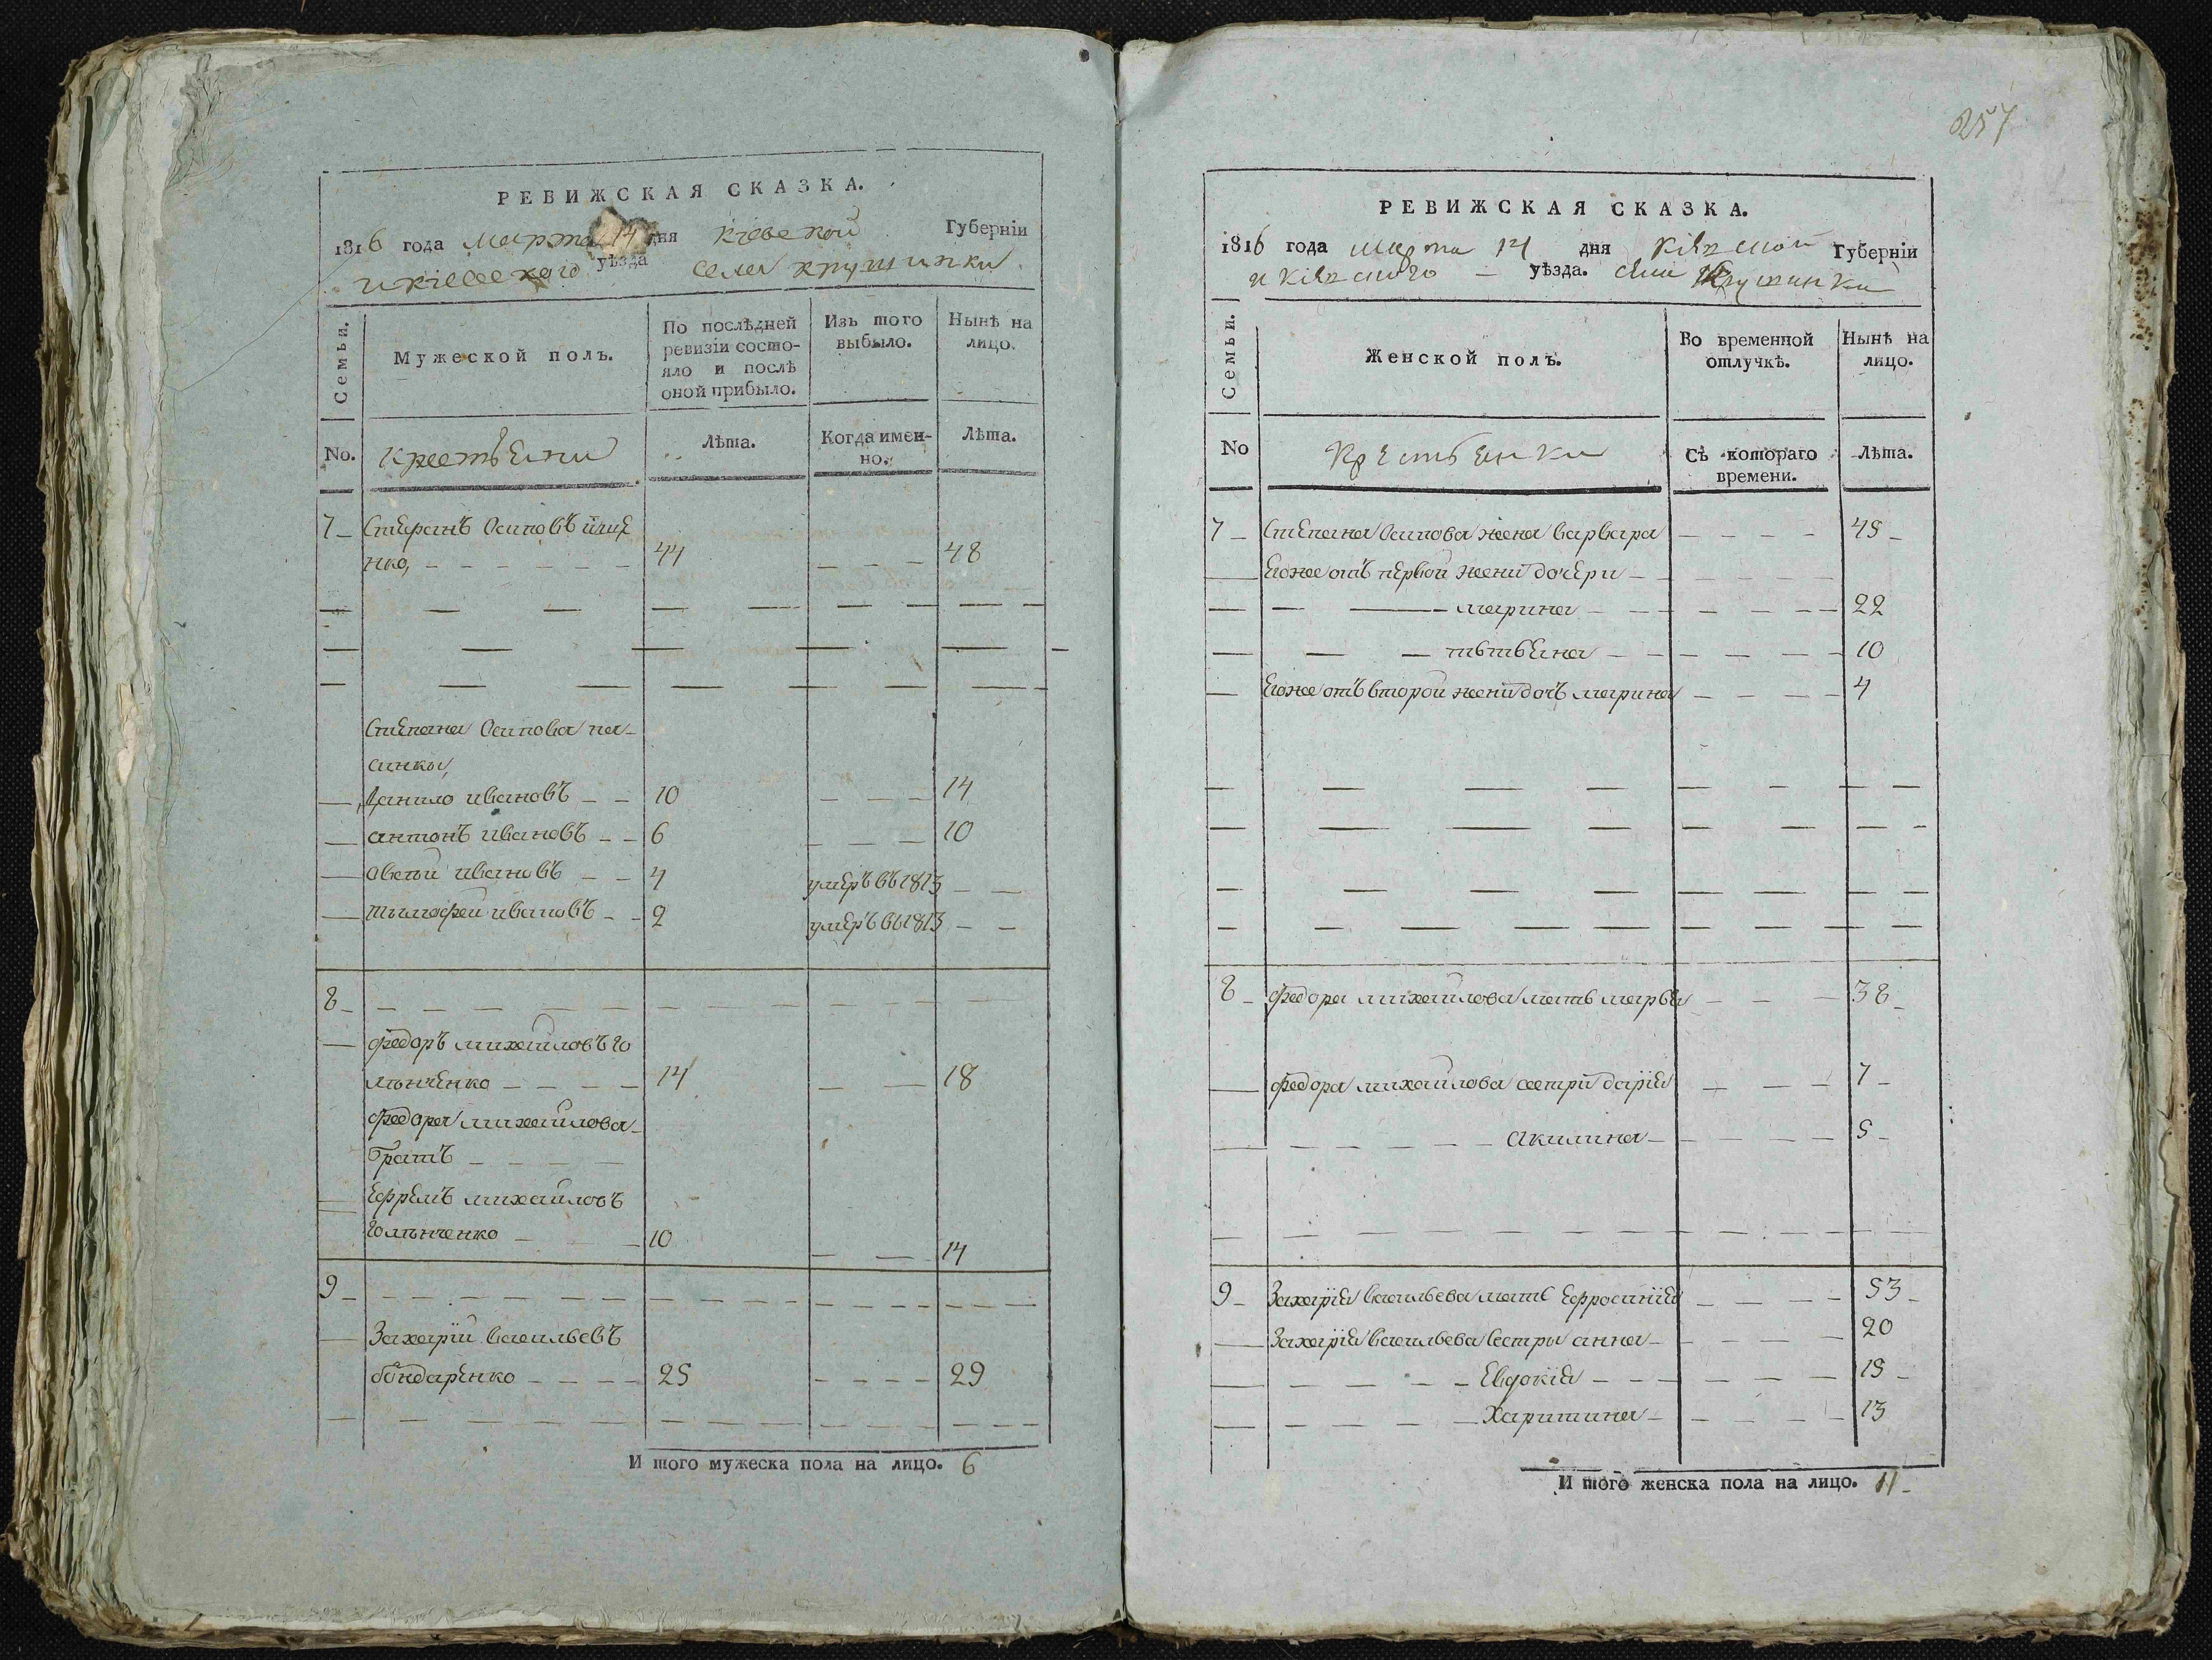 РЕВИЖСКАЯ СКАЗКА.
1816 года марта 14 дня Кіевской Губерніи
и Кіевского уѣзда села крушинки
Семьи.
Мужеской полъ.
По послѣдней ревизіи состояло и послѣ оной прибыло.
Изъ того выбыло.
Нынѣ на лицо.
No. крестьяни
Лѣта.
Когда именно.
Лѣта.
7 Стефанъ Осиповъ
нко, 44 48
Степана Осипова па-
синки,
Данило ивановъ 10 14
антонъ ивановъ 6 10
ивановъ 4 умеръ въ 1813
тимофей ивановъ 2 умеръ въ 1813
8
федоръ михайловъ го
лънченко 14 18
федора михайлова
братъ
Ефремъ михайловъ
голънченко 10 14
9
Захарій васильевъ
бондаренко 25 29
И того мужеска пола на лицо. 6
257
РЕВИЖСКАЯ СКАЗКА.
1816 года марта 14 дня Кіевской Губерніи
и Кіевского уѣзда. села Крушинки
Семьи.
Женской полъ.
Во временной отлучкѣ.
Нынѣ на лицо.
No Крестьянки
Съ котораго времени.
Лѣта.
7 Степана Осипова жена варвара 45
Егоже отъ первой жени дочери
марина 22
тътьяна 10
Егоже отъ второй жени дочъ марина 4
8 федора михайлова мать марья 38
федора михайлова сестри дарія 7
акилина 5
9 Захарія васильева мать Ефросинія 53
Захарія васильева сестры анна 20
Евдокія 15
Харитина 13
И того женска пола на лицо. 11